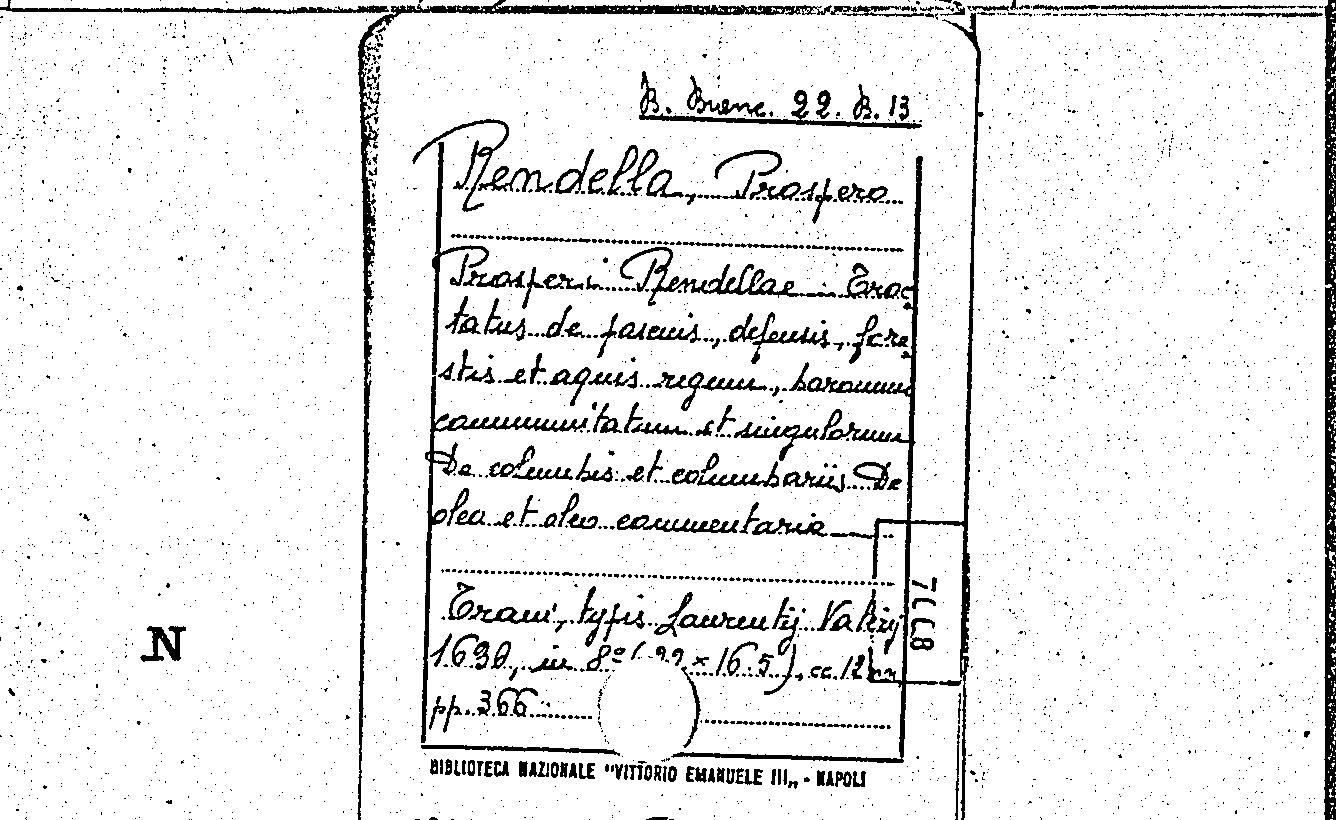 B. Branc. 22. B. 13
Rendella, Prospero
Prosperi Rendellae. Trac-
tatus de pascuis, defensis, fore-
stis et aquis regum, baronum
communitatum et singulorum
De columbis et columbariis De
olea et oleo commentaria
Trani, typis Laurentij Valerij
1630, in 8° (22 × 16.5), cc. 12 nn
pp. 366
BIBLIOTECA NAZIONALE "VITTORIO EMANUELE III„ - NAPOLI
N